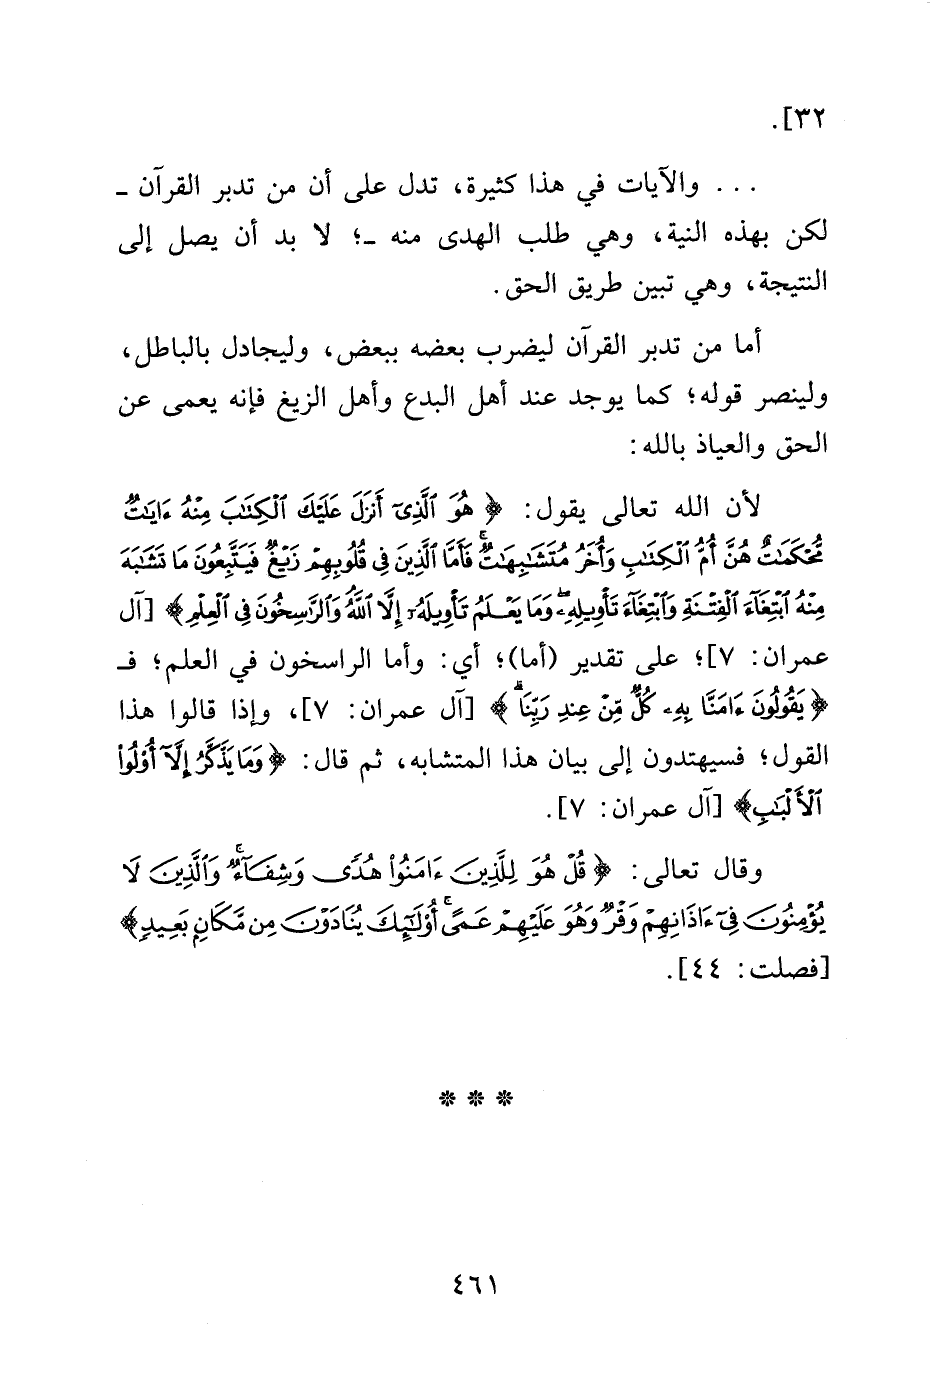 ٣٢].
... والآيات في هذا كثيرة، تدل على أن من تدبر القرآن ـ
لكن بهذه النية، وهي طلب الهدى منه ـ؛ لا بد أن يصل إلى
النتيجة، وهي تبين طريق الحق.
أما من تدبر القرآن ليضرب بعضه ببعض، وليجادل بالباطل،
ولينصر قوله؛ كما يوجد عند أهل البدع وأهل الزيغ فإنه يعمى عن
الحق والعياذ بالله:
لأن الله تعالى يقول: ﴿هُوَ ٱلَّذِىٓ أَنزَلَ عَلَيْكَ ٱلْكِتَٰبَ مِنْهُ ءَايَٰتٌ
مُّحْكَمَٰتٌ هُنَّ أُمُّ ٱلْكِتَٰبِ وَأُخَرُ مُتَشَٰبِهَٰتٌ ۖ فَأَمَّا ٱلَّذِينَ فِى قُلُوبِهِمْ زَيْغٌ فَيَتَّبِعُونَ مَا تَشَٰبَهَ
مِنْهُ ٱبْتِغَآءَ ٱلْفِتْنَةِ وَٱبْتِغَآءَ تَأْوِيلِهِۦ ۗ وَمَا يَعْلَمُ تَأْوِيلَهُۥٓ إِلَّا ٱللَّهُ وَٱلرَّٰسِخُونَ فِى ٱلْعِلْمِ﴾ [آل
عمران: ٧]؛ على تقدير (أما)؛ أي: وأما الراسخون في العلم؛ فـ
﴿يَقُولُونَ ءَامَنَّا بِهِۦ كُلٌّ مِّنْ عِندِ رَبِّنَا ۗ﴾ [آل عمران: ٧]، وإذا قالوا هذا
القول؛ فسيهتدون إلى بيان هذا المتشابه، ثم قال: ﴿وَمَا يَذَّكَّرُ إِلَّآ أُو۟لُوا۟
ٱلْأَلْبَٰبِ﴾ [آل عمران: ٧].
وقال تعالى: ﴿قُلْ هُوَ لِلَّذِينَ ءَامَنُوا۟ هُدًى وَشِفَآءٌ ۖ وَٱلَّذِينَ لَا
يُؤْمِنُونَ فِىٓ ءَاذَانِهِمْ وَقْرٌ وَهُوَ عَلَيْهِمْ عَمًى ۚ أُو۟لَٰٓئِكَ يُنَادَوْنَ مِن مَّكَانٍ بَعِيدٍ﴾
[فصلت: ٤٤].
* * *
٤٦١